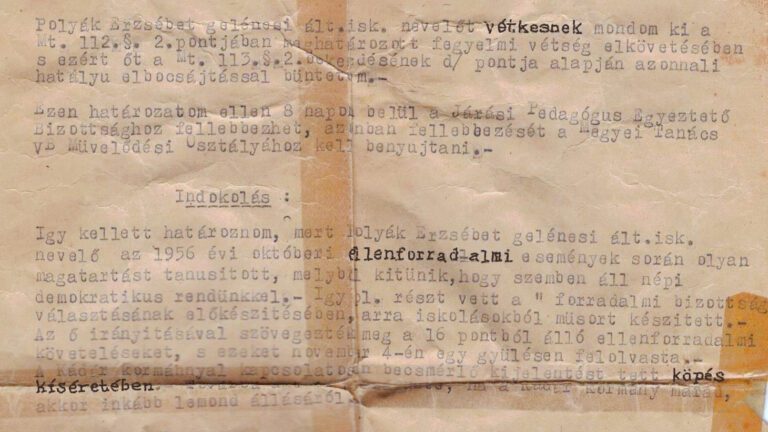 Polyák Erzsébet gelénesi ált.isk. nevelőt vétkesnek mondom ki a
Mt. 112.§. 2.pontjában meghatározott fegyelmi vétség elkövetésében
s ezért őt a Mt. 113.§.2.bekezdésének d/ pontja alapján azonnali
hatályu elbocsájtással büntetem.-
Ezen határozatom ellen 8 napon belül a Járási Pedagógus Egyeztető
Bizottsághoz fellebbezhet, azonban fellebbezését a Megyei Tanács
VB Müvelődési Osztályához kell benyujtani.-
Indokolás :
Igy kellett határoznom, mert Polyák Erzsébet gelénesi ált.isk.
nevelő az 1956 évi októberi ellenforradalmi események során olyan
magatartást tanusitott, melyből kitünik,hogy szemben áll népi
demokratikus rendünkkel.- Igy pl. részt vett a " forradalmi bizottság
választásának előkészitésében, arra iskolásokból müsort készitett.-
Az ő irányitásával szövegezték meg a 16 pontból álló ellenforradalmi
követeléseket, s ezeket november 4-én egy gyülésen felolvasta.-
A Kádár kormánnyal kapcsolatosan becsmérlő kijelentést tett köpés
kíséretében. ha a Kádár kormány marad,
akkor inkább lemond állásáról.